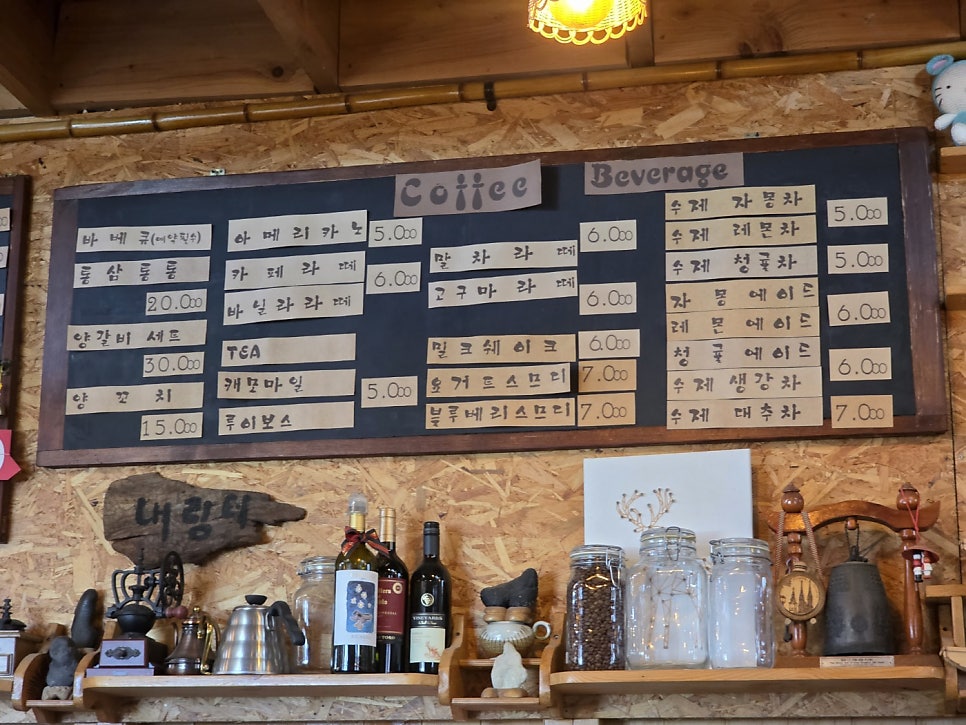 Coffee
Beverage
바베큐(예약필수)
통삼통통
20.000
양갈비 세트
30.000
양꼬치
15.000
아메리카노 5.000
카페라떼
바일라라떼
6.000
TEA
캐모마일
루이보스
5.000
말차라떼 6.000
고구마라떼 6.000
밀크쉐이크 6.000
요거트스므디 7.000
블루베리스므디 7.000
수제 자몽차
수제 레몬차
5.000
수제 청귤차 5.000
자몽에이드
레몬에이드
6.000
청귤에이드
수제 생강차
6.000
수제 대추차 7.000
내랑타
VINEYARDS